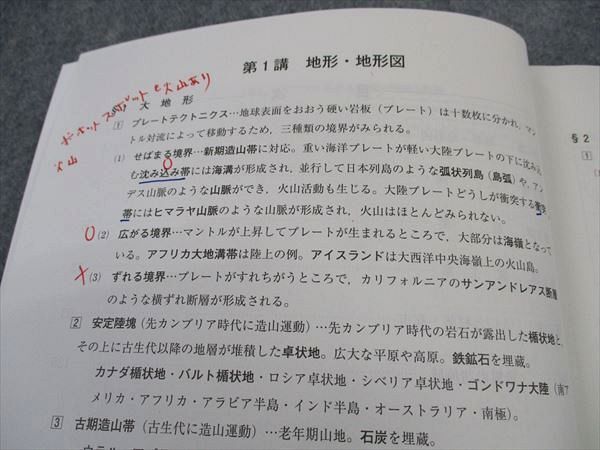 第1講 地形・地形図
ホットスポットも火山あり
火山
大地形
1 プレートテクトニクス…地球表面をおおう硬い岩板(プレート)は十数枚に分かれ,マン
トル対流によって移動するため,三種類の境界がみられる。
(1) せばまる境界…新期造山帯に対応。重い海洋プレートが軽い大陸プレートの下に沈み込
む沈み込み帯には海溝が形成され,並行して日本列島のような弧状列島(島弧)や,アン
デス山脈のような山脈ができ,火山活動も生じる。大陸プレートどうしが衝突する衝突
帯にはヒマラヤ山脈のような山脈が形成され,火山はほとんどみられない。
○(2) 広がる境界…マントルが上昇してプレートが生まれるところで,大部分は海嶺となって
いる。アフリカ大地溝帯は陸上の例。アイスランドは大西洋中央海嶺上の火山島。
×(3) ずれる境界…プレートがすれちがうところで,カリフォルニアのサンアンドレアス断層
のような横ずれ断層が形成される。
2 安定陸塊(先カンブリア時代に造山運動)…先カンブリア時代の岩石が露出した楯状地と,
その上に古生代以降の地層が堆積した卓状地。広大な平原や高原。鉄鉱石を埋蔵。
カナダ楯状地・バルト楯状地・ロシア卓状地・シベリア卓状地・ゴンドワナ大陸(南ア
メリカ・アフリカ・アラビア半島・インド半島・オーストラリア・南極)。
3 古期造山帯(古生代に造山運動)…老年期山地。石炭を埋蔵。
§2
1